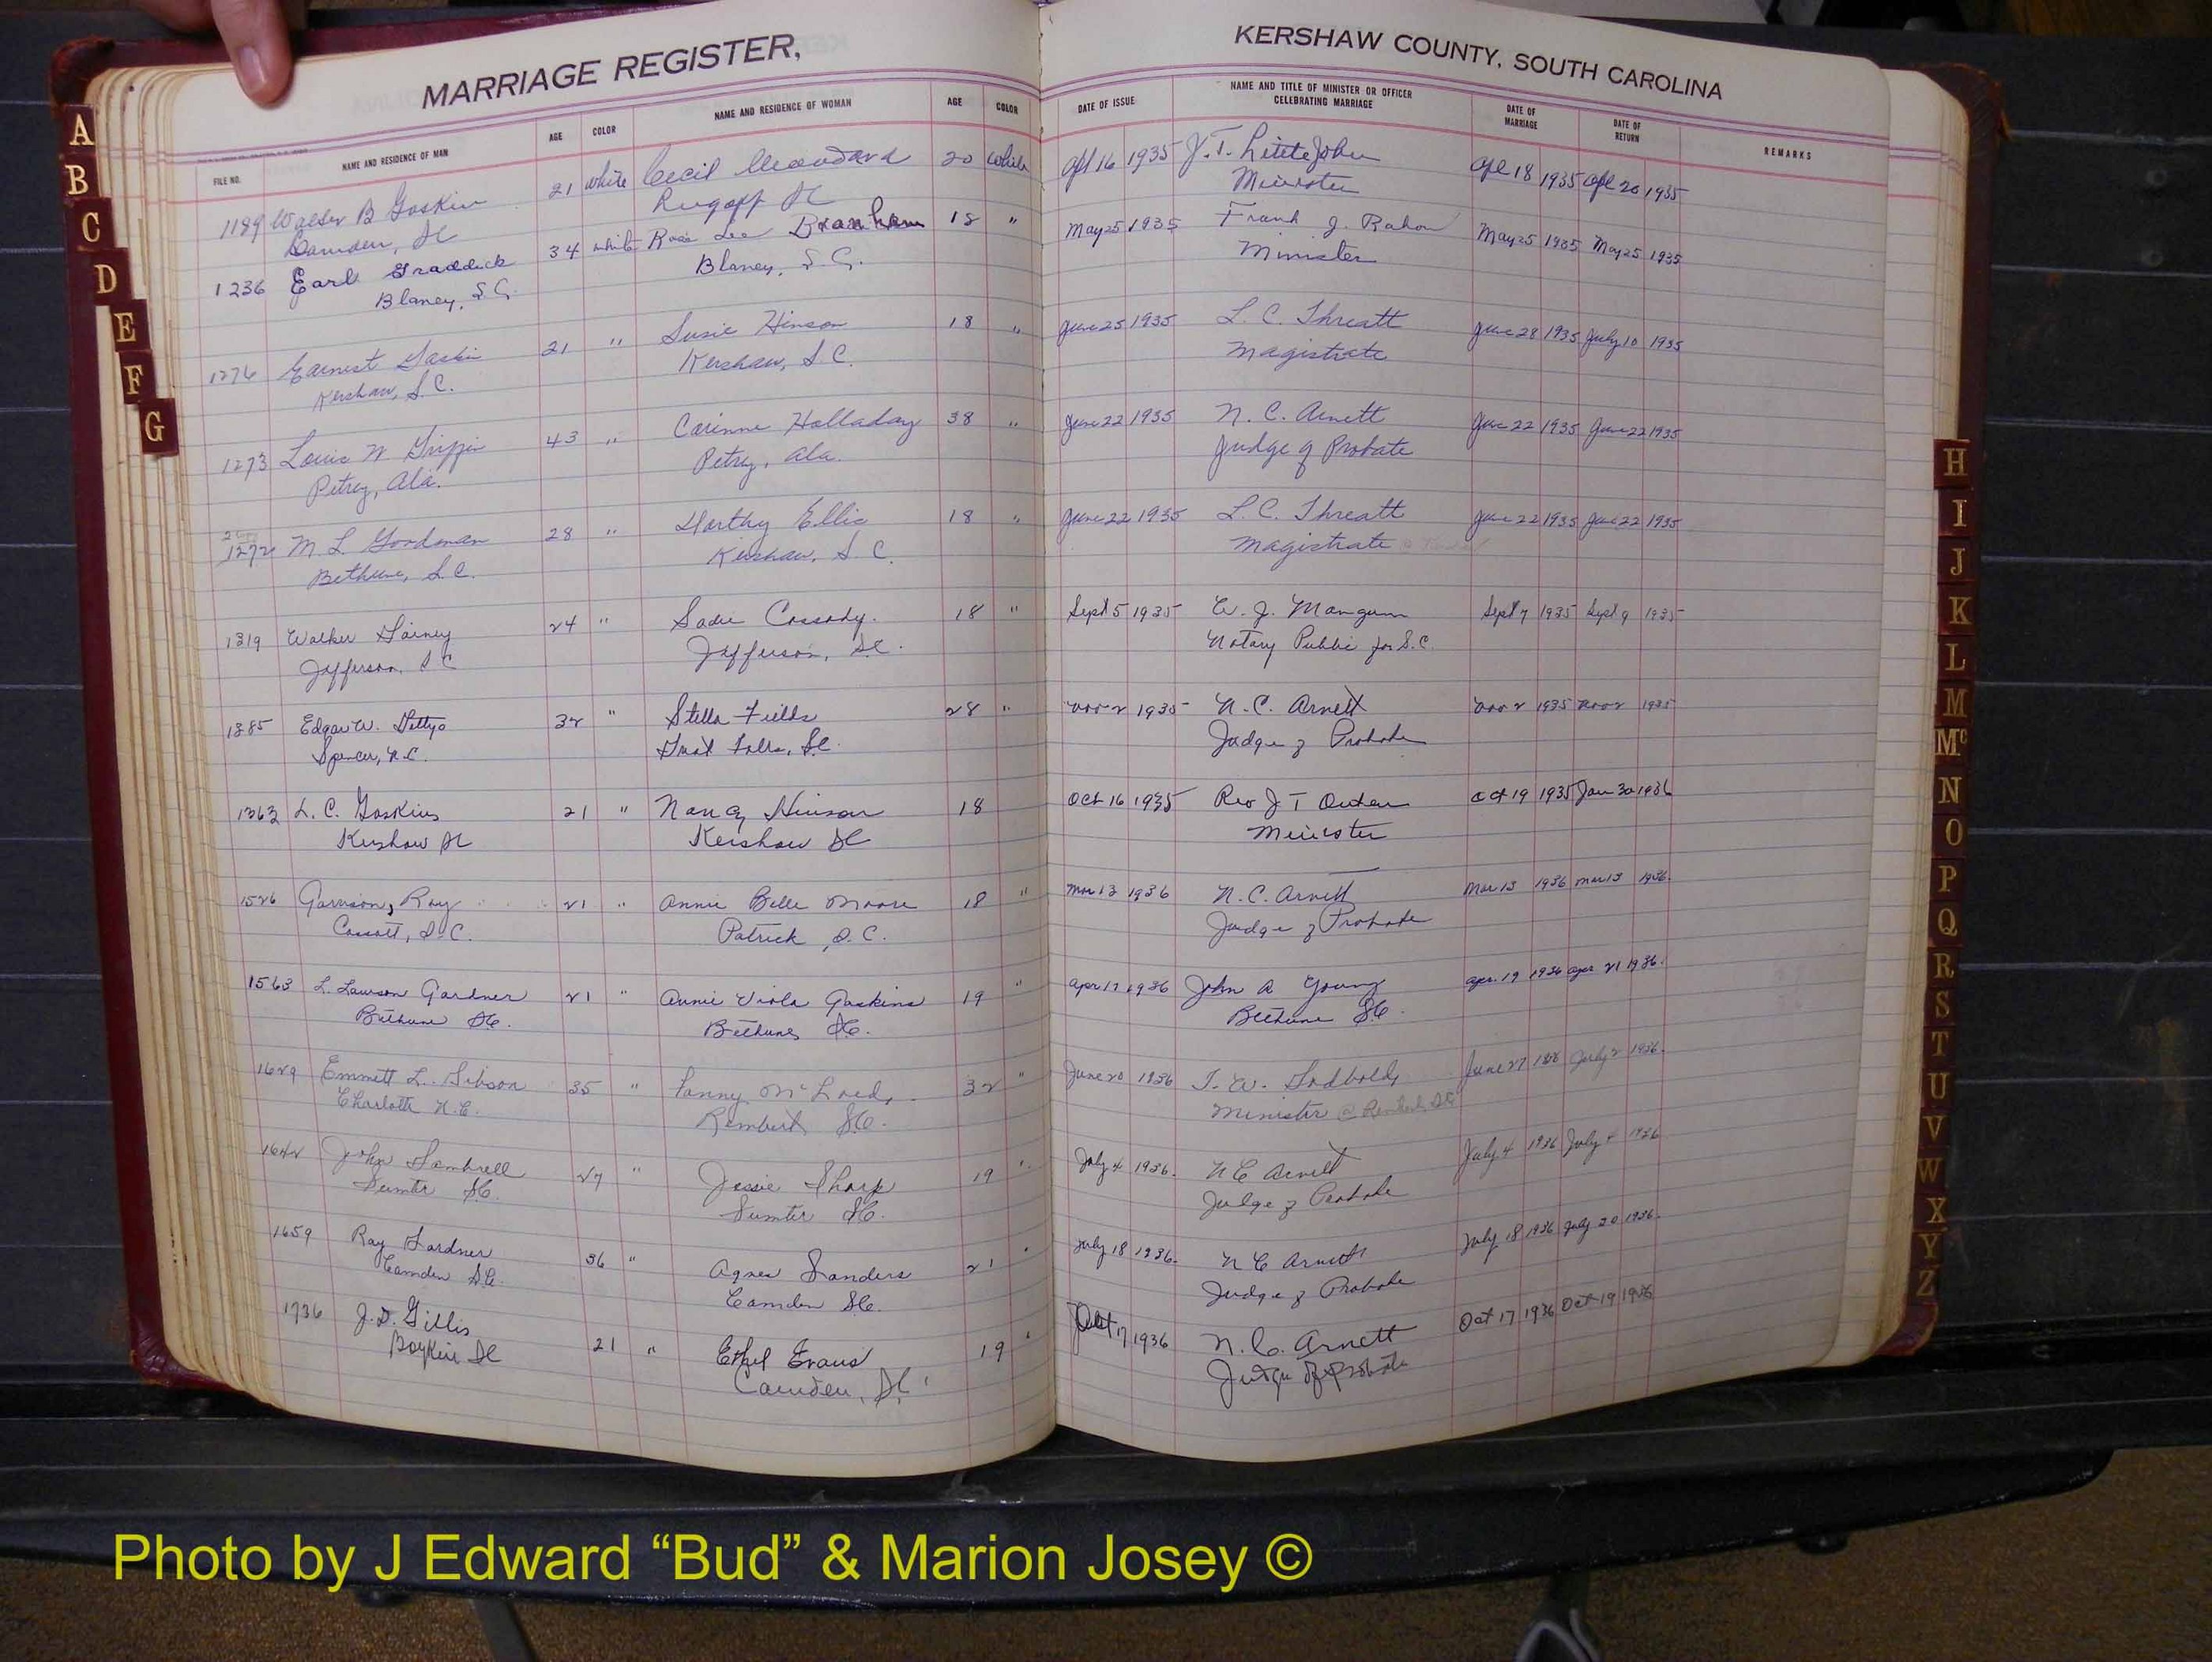 MARRIAGE REGISTER,
KERSHAW COUNTY, SOUTH CAROLINA
FILE NO. NAME AND RESIDENCE OF MAN AGE COLOR NAME AND RESIDENCE OF WOMAN AGE COLOR DATE OF ISSUE NAME AND TITLE OF MINISTER OR OFFICER CELEBRATING MARRIAGE DATE OF MARRIAGE DATE OF RETURN REMARKS
1189 Walter B Gaskin 21 white Cecil 20 white Apl 16 1935 J. T. LittleJohn Apl 18 1935 Apl 20 1935
Camden, SC Lugoff SC Minister
1236 Earl Graddick 34 white Rosa Lee Branham 18 " May 25 1935 Frank J. May 25 1935 May 25 1935
Blaney, S.C. Blaney, S.C. Minister
1276 Earnest Gaskin 21 " Susie Hinson 18 " June 25 1935 L. C. Threatt June 28 1935 July 10 1935
Kershaw, S.C. Kershaw, S C. Magistrate
1273 Louie W Griffin 43 " Corinne Halladay 38 " June 22 1935 N. C. Arnett June 22 1935 June 22 1935
Petrey, Ala. Petrey, Ala. Judge of Probate
1272 M L Goodman 28 " Dorthy Ellis 18 " June 22 1935 L. C. Threatt June 22 1935 June 22 1935
Bethune, S.C. Kershaw, S. C. Magistrate
1319 Walker Gainey 24 " Sadie Cassady. 18 " Sept 5 1935 W. J. Mangum Sept 7 1935 Sept 9 1935
Jefferson, S C Jefferson, S.C. Notary Public for S.C.
1385 Edgar W. 32 " Stella Fields 28 " Nov 2 1935 N. C. Arnett Nov 2 1935 Nov 2 1935
Spencer, N.C. Great Falls, S.C. Judge of Probate
1363 L. C. Gaskins 21 " Nancy Hinson 18 Oct 16 1935 Rev J T Outen Oct 19 1935 Jan 30 1936
Kershaw SC Kershaw SC Minister
1526 Garrison, Ray 21 " Annie Belle Moore 18 " Mar 13 1936 N. C. Arnett Mar 13 1936 Mar 13 1936
Cassatt, S.C. Patrick, S. C. Judge of Probate
1563 L. Lawson Gardner 21 " Annie Viola Gaskins 19 " Apr 17 1936 John A Young Apr. 19 1936 Apr 21 1936.
Bethune SC. Bethune, SC. Bethune SC.
1629 Emmett L. Gibson 35 " Fanny McLeod, 32 " June 20 1936 T. W. Godbold, June 27 1936 July 2 1936.
Charlotte N.C. Rembert SC. Minister @ Rembert, SC
1642 John Gambrell 27 " Jessie Sharp 19 " July 4 1936. N C Arnett July 4 1936 July 4 1936
Sumter SC. Sumter SC. Judge of Probate
1659 Ray Gardner 36 " Agnes Sanders 21 " July 18 1936. N C Arnett July 18 1936 July 20 1936.
Camden SC. Camden SC. Judge of Probate
1736 J.D. Gillis 21 " Ethel Evans 19 " Oct 17 1936 N. C. Arnett Oct 17 1936 Oct 19 1936
Boykin SC Camden, SC. Judge of Probate
A
B
C
D
E
F
G
H
I
J
K
L
M
Mc
N
O
P
Q
R
S
T
U
V
W
X
Y
Z
Photo by J Edward “Bud” & Marion Josey ©